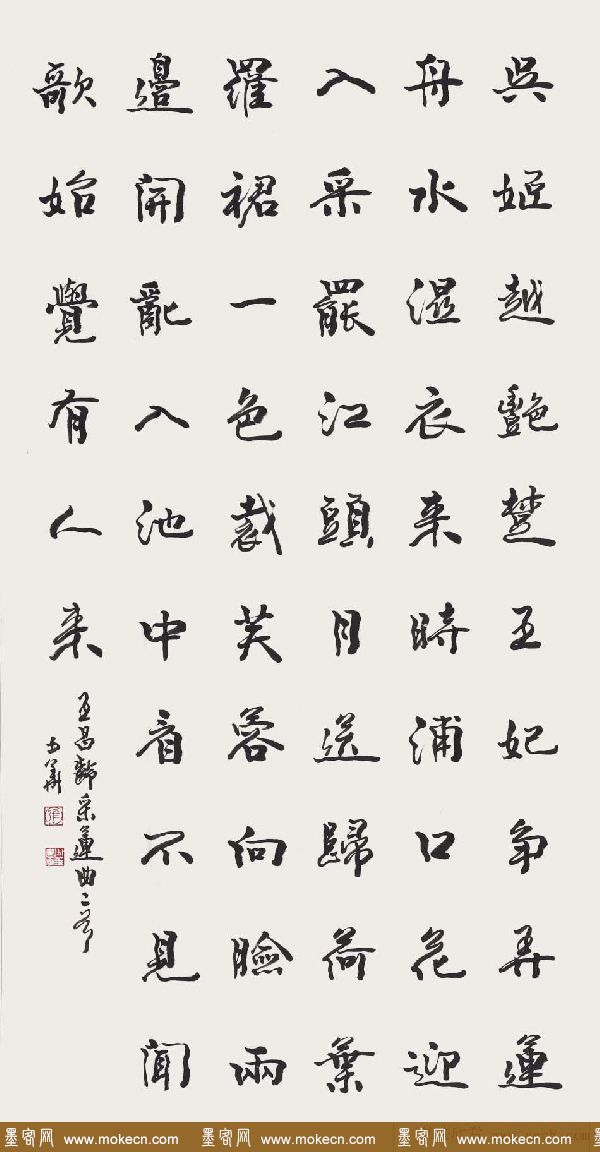 吳姬越艷楚王妃争弄蓮
舟水濕衣来時浦口花迎
入采罷江頭月送歸荷葉
羅裙一色裁芙蓉向臉兩
邊開亂入池中看不見聞
歌始覺有人来
王昌齡采蓮曲二首
墨客网 www.mokecn.com 墨客网 www.mokecn.com 墨客网 www.mokecn.com